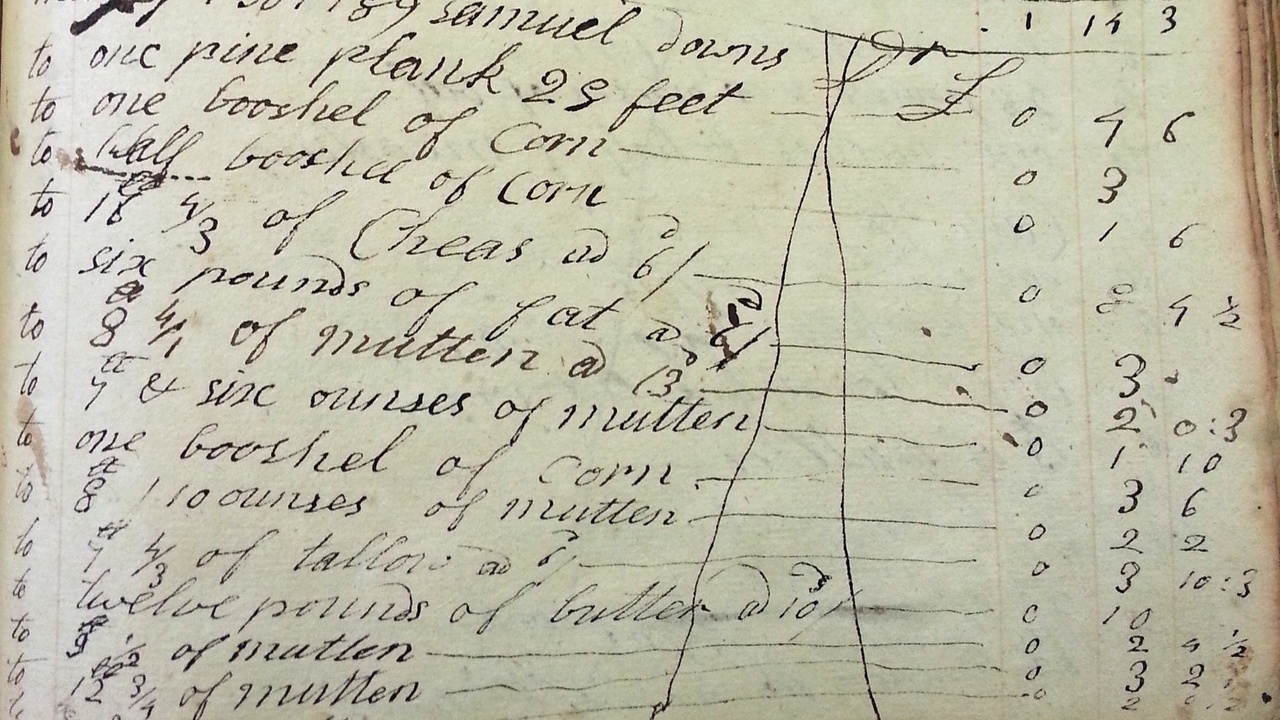 Samuel downs Dr 1 14 3
to one pine plank 29 feet £ 0 4 6
to one booshel of Corn 0 3
to half booshel of Corn 0 1 6
to 16 4/3 of Cheas ad 6/ 0 8 4 1/2
to six pounds of fat a 6/ 0 3
to 8 4/1 of mutten a 13 0 2 0:3
to 7 & six ounses of mutten 0 1 10
to one booshel of Corn 0 3 6
to 8 10 ounses of mutten 0 2 2
to 7 4/3 of tallow ad 6/ 0 3 10:3
to twelve pounds of butter ad 10/ 0 10
to 9 1/2 of mutten 0 2 4 1/2
to 12 3/4 of mutten 0 3 2